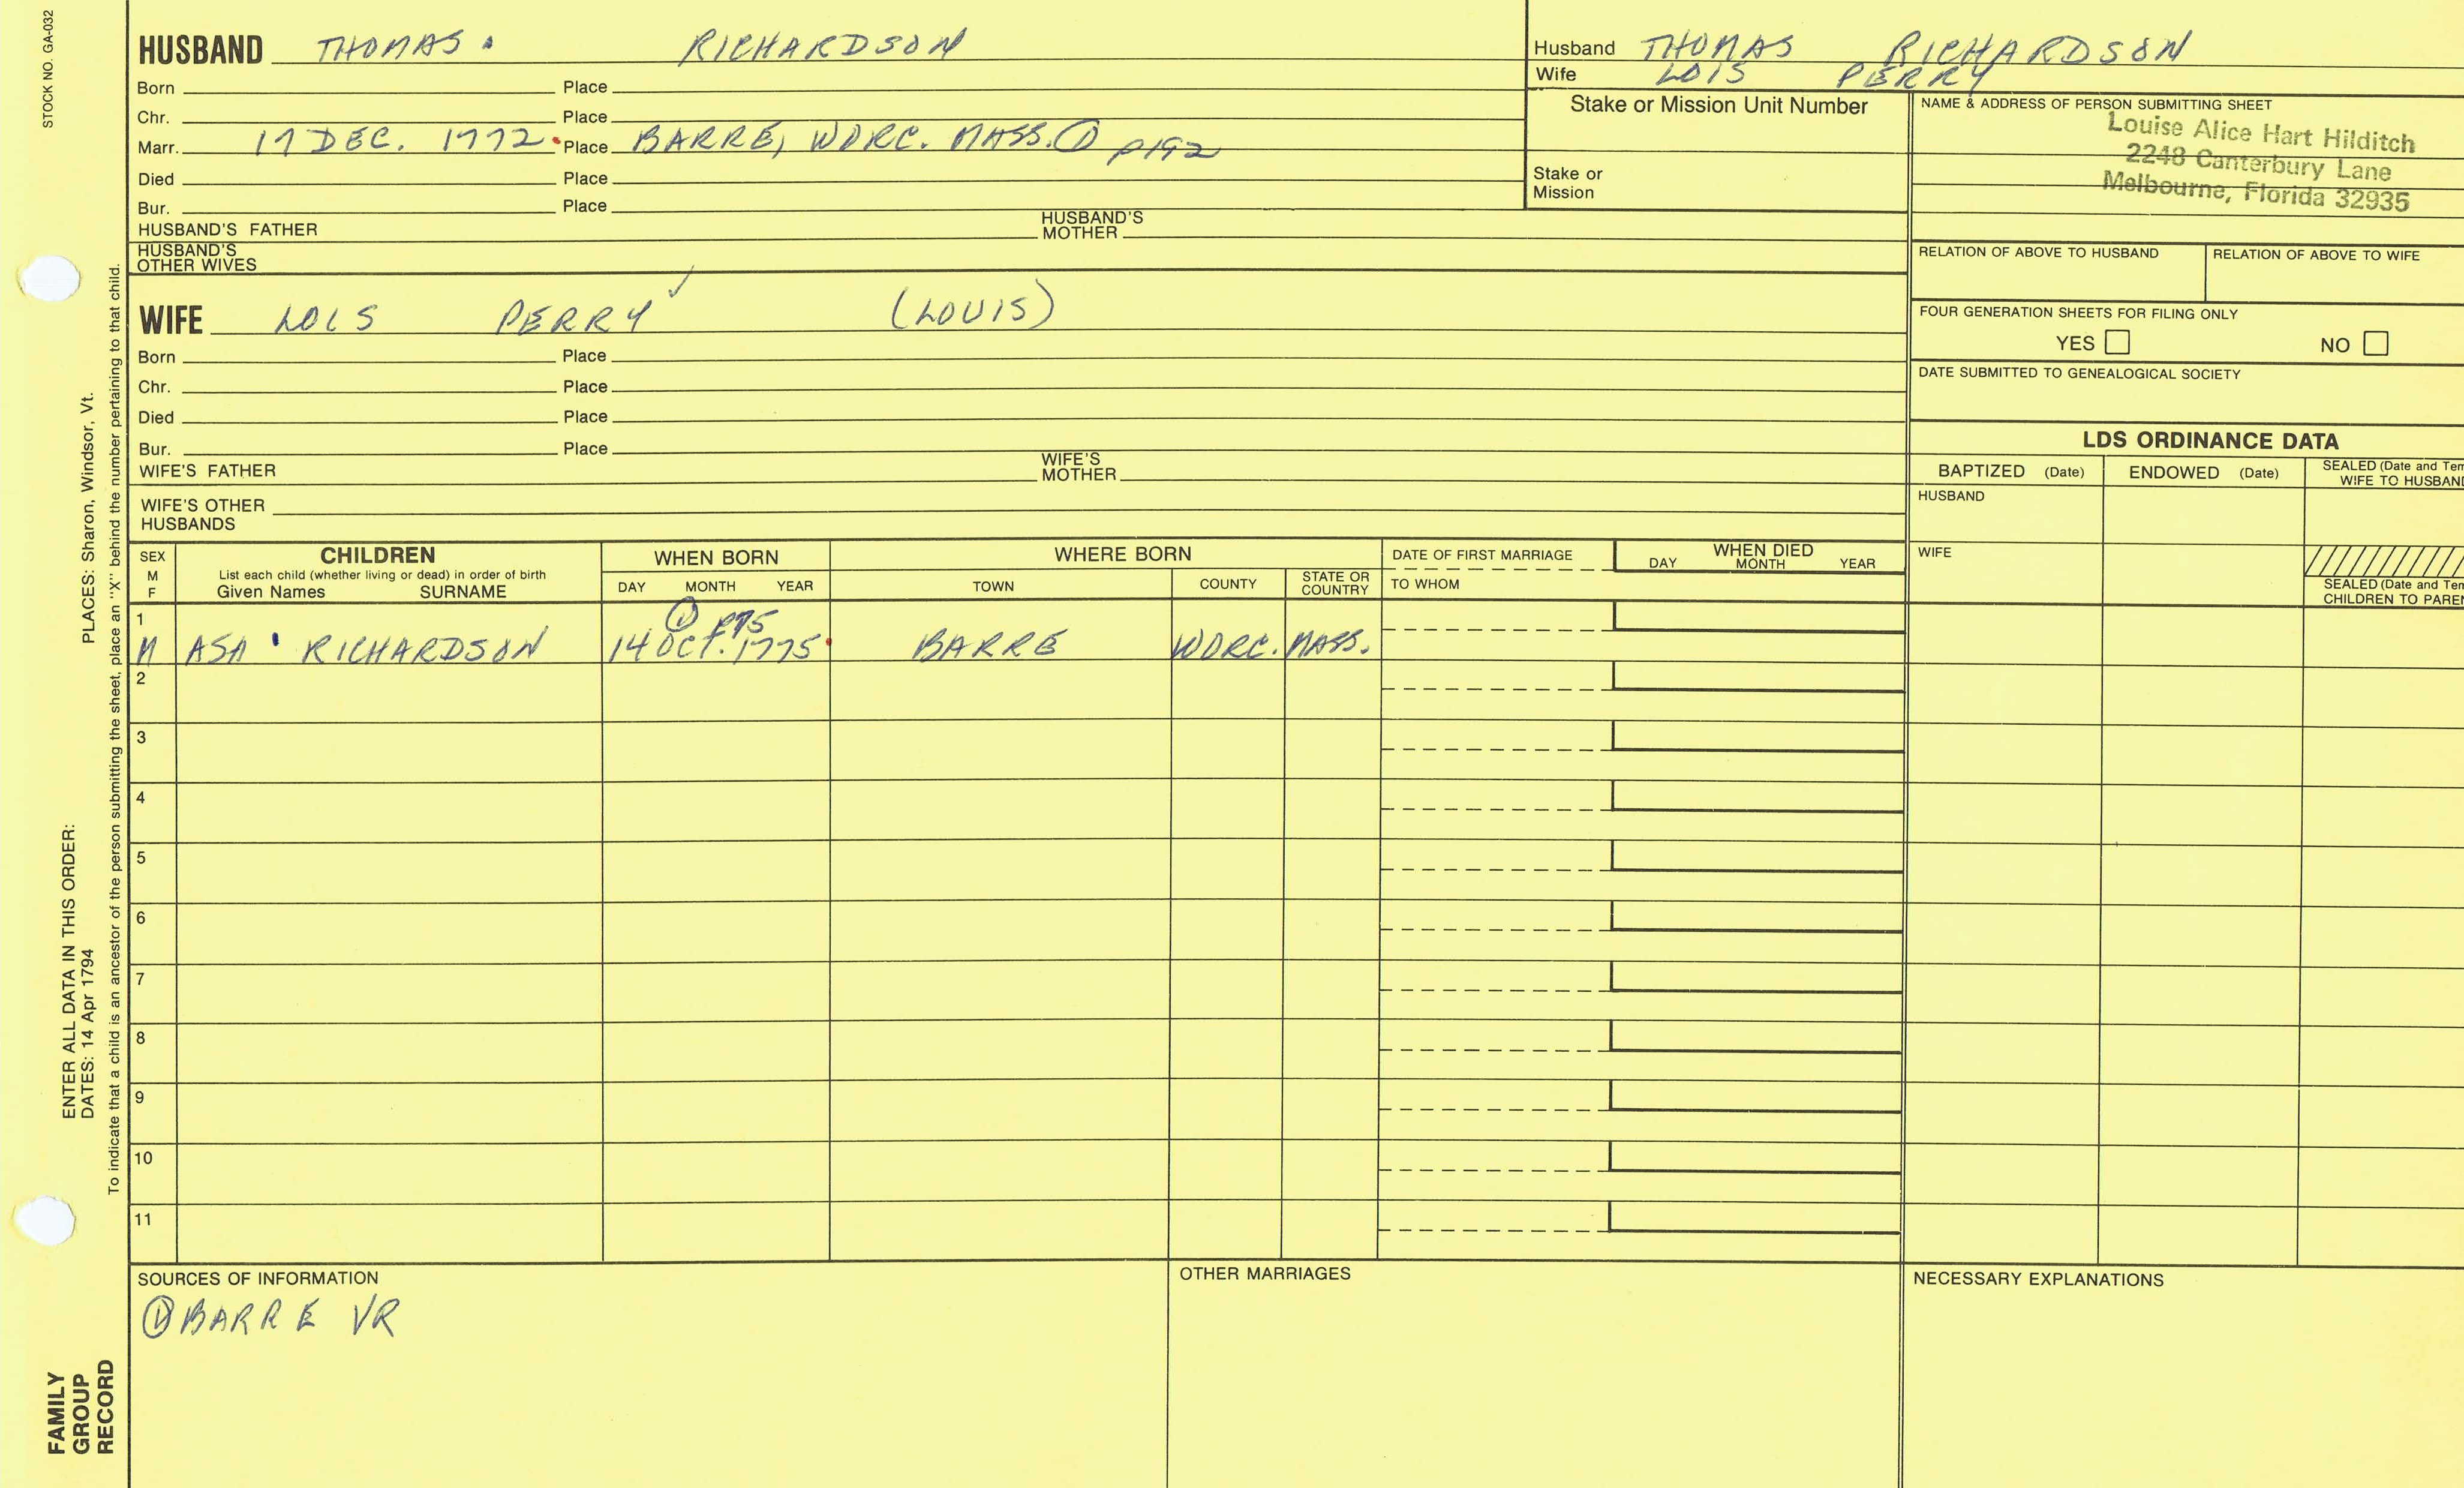 STOCK NO. GA-032
HUSBAND THOMAS. RICHARDSON
Born Place
Chr. Place
Marr. 17 DEC. 1772 Place BARRE, WORC. MASS. ① p192
Died Place
Bur. Place
HUSBAND'S FATHER HUSBAND'S MOTHER
HUSBAND'S OTHER WIVES
WIFE LOIS PERRY ✓ (LOUIS)
Born Place
Chr. Place
Died Place
Bur. Place
WIFE'S FATHER WIFE'S MOTHER
WIFE'S OTHER HUSBANDS
Husband THOMAS RICHARDSON
Wife LOIS PERRY
Stake or Mission Unit Number
Stake or
Mission
NAME & ADDRESS OF PERSON SUBMITTING SHEET
Louise Alice Hart Hilditch
2248 Canterbury Lane
Melbourne, Florida 32935
RELATION OF ABOVE TO HUSBAND RELATION OF ABOVE TO WIFE
FOUR GENERATION SHEETS FOR FILING ONLY
YES NO
DATE SUBMITTED TO GENEALOGICAL SOCIETY
LDS ORDINANCE DATA
BAPTIZED (Date) ENDOWED (Date) SEALED (Date and Tem
WIFE TO HUSBAND
HUSBAND
WIFE
SEALED (Date and Tem
CHILDREN TO PAREN
SEX
M
F
CHILDREN
List each child (whether living or dead) in order of birth
Given Names SURNAME
WHEN BORN
DAY MONTH YEAR
WHERE BORN
TOWN COUNTY STATE OR COUNTRY
DATE OF FIRST MARRIAGE
TO WHOM
WHEN DIED
DAY MONTH YEAR
1 ① p75
M ASA RICHARDSON 14 OCT. 1775 BARRE WORC. MASS.
2
3
4
5
6
7
8
9
10
11
SOURCES OF INFORMATION
① BARRE VR
OTHER MARRIAGES
NECESSARY EXPLANATIONS
ENTER ALL DATA IN THIS ORDER:
DATES: 14 Apr 1794 PLACES: Sharon, Windsor, Vt.
To indicate that a child is an ancestor of the person submitting the sheet, place an "X" behind the number pertaining to that child.
FAMILY
GROUP
RECORD